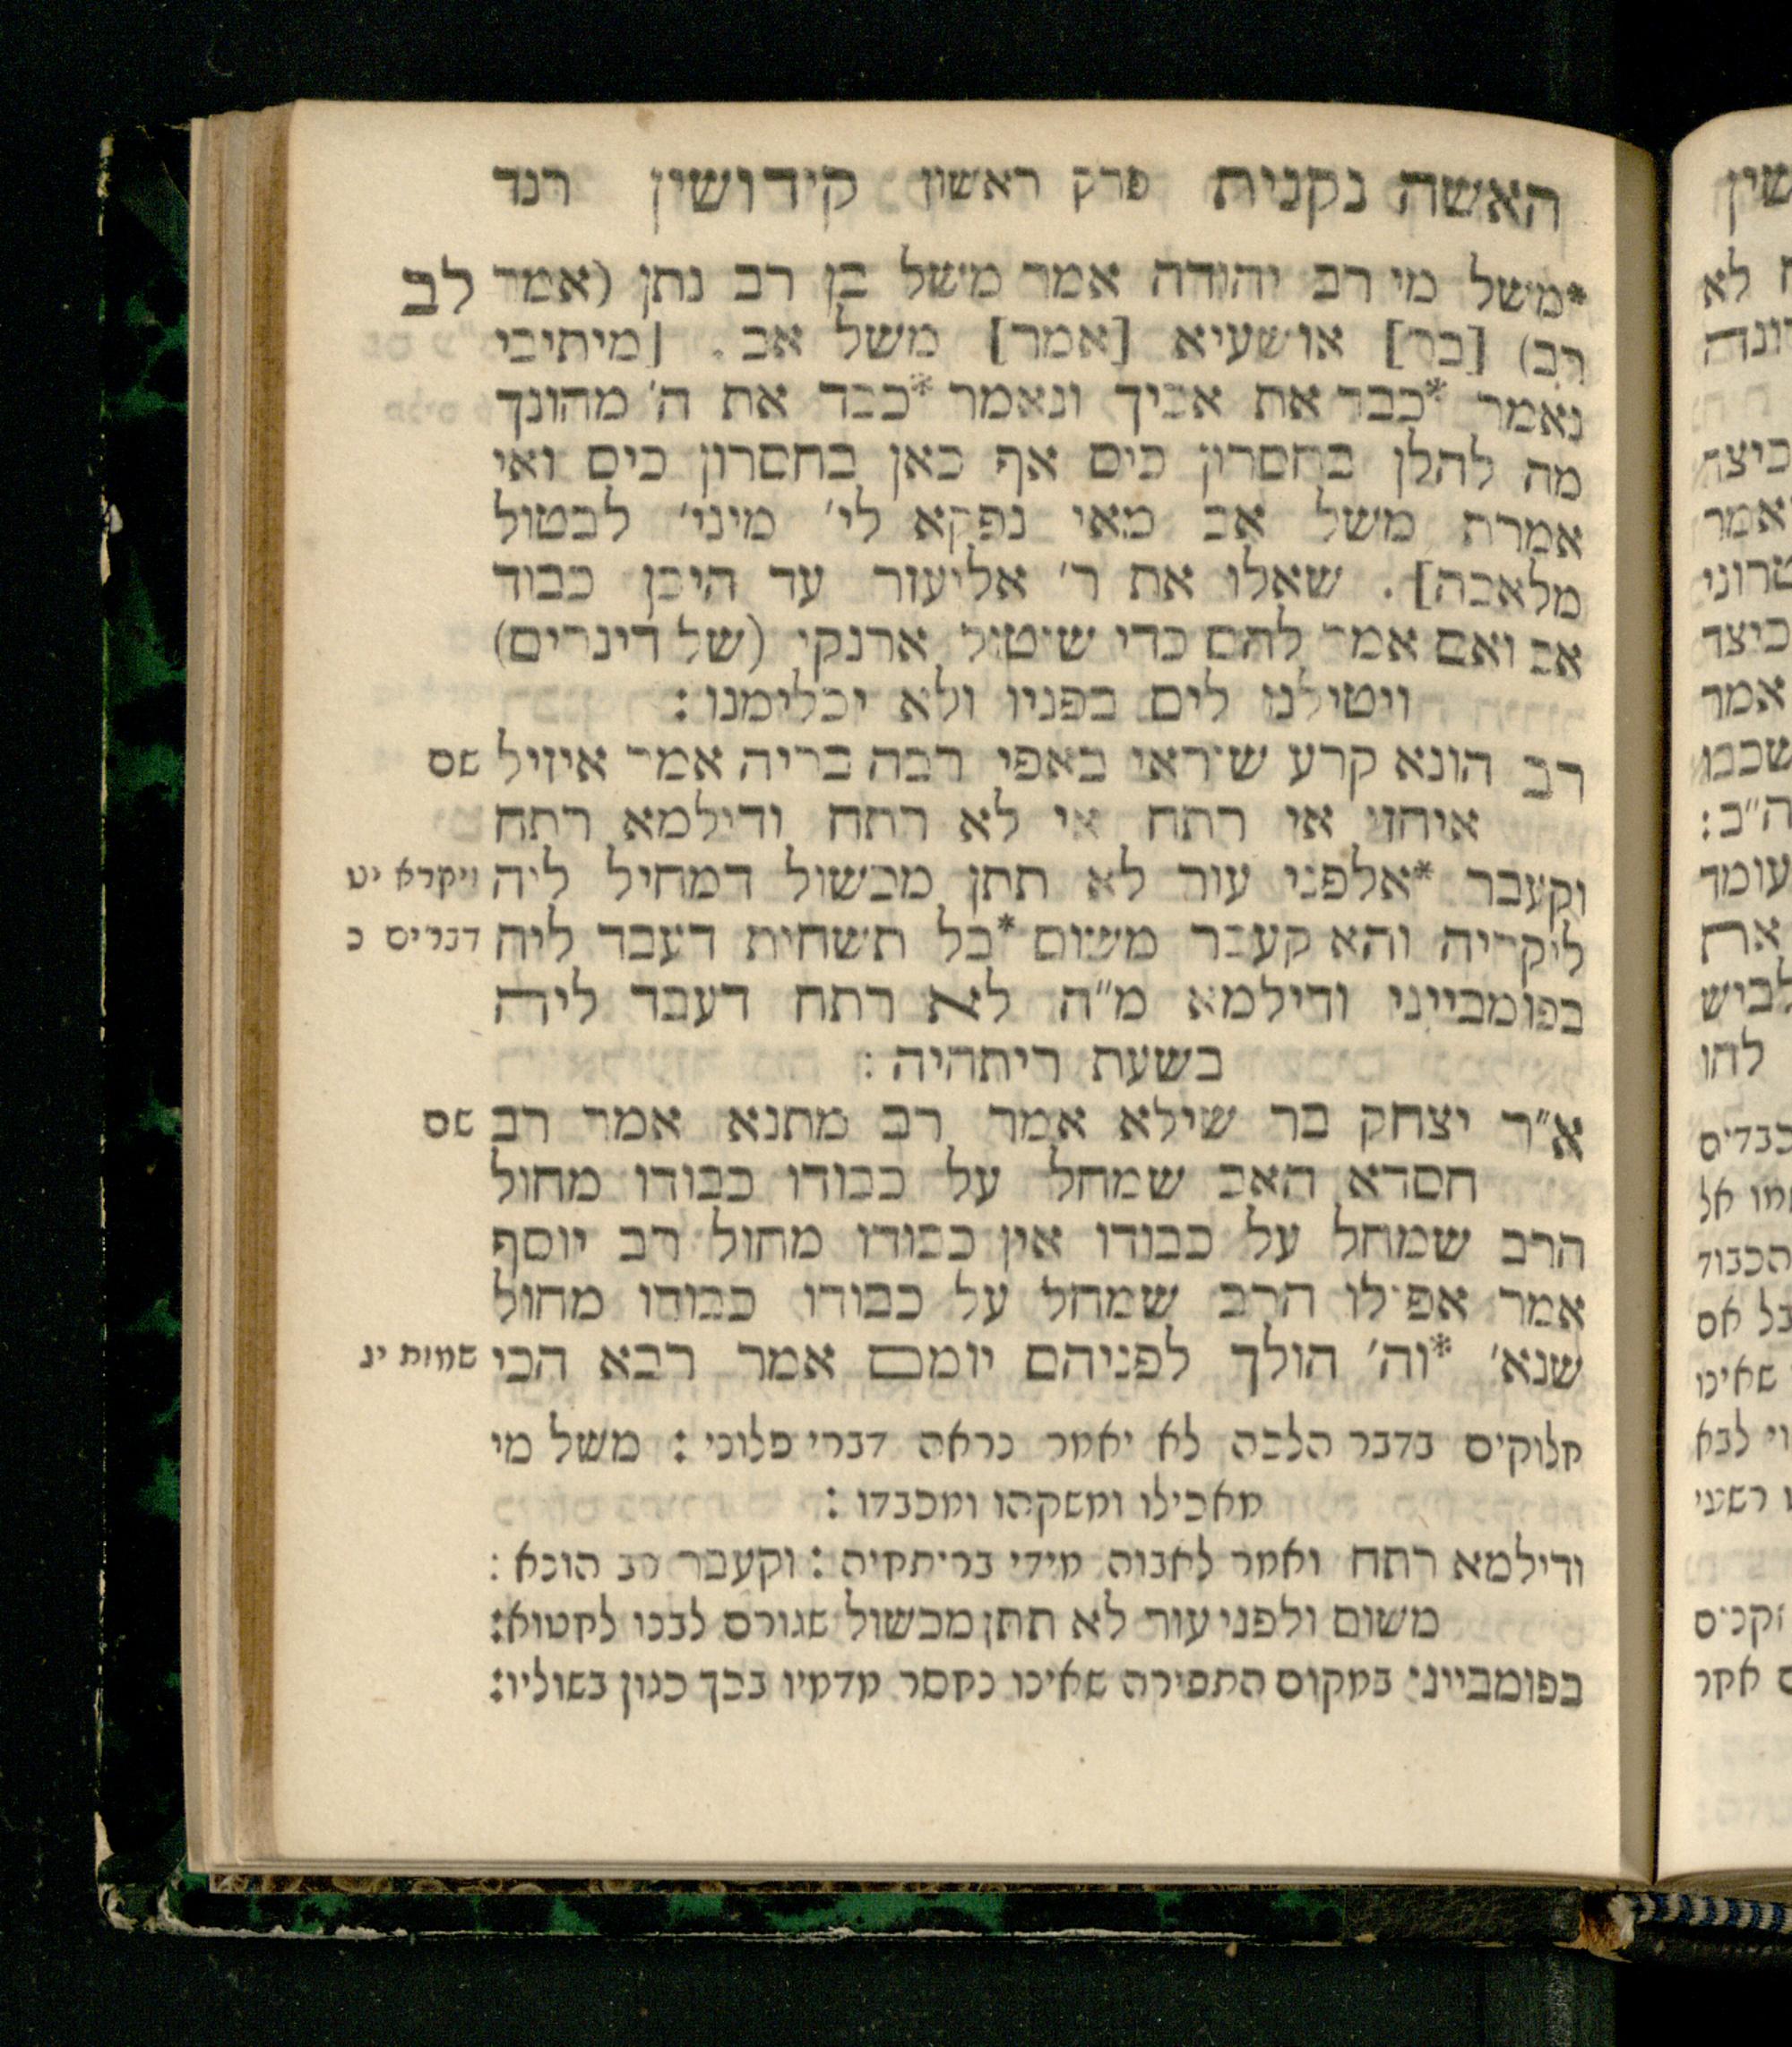 האשה נקנית פרק ראשון קידושין רנד
*משל מי רב יהודה אמר משל בן רב נתן (אמר לב
רב) [בר] אושעיא [אמר] משל אב. [מיתיבי
נאמר *כבד את אביך ונאמר *כבד את ה' מהונך
מה להלן בחסרון כיס אף כאן בחסרון כיס ואי
אמרת משל אב מאי נפקא לי' מיני' לבטול
מלאכה]. שאלו את ר' אליעזר עד היכן כבוד
אב ואם אמר להם כדי שיטול ארנקי (של דינרים)
ויטילנו לים בפניו ולא יכלימנו:
רב הונא קרע שיראי באפי רבה בריה אמר איזיל שם
איחזי אי רתח אי לא רתח ודילמא רתח
וקעבר *אלפני עור לא תתן מכשול דמחיל ליה ויקרא יט
ליקריה והא קעבר משום *בל תשחית דעבד ליה דברים כ
בפומבייני ודילמא מ"ה לא רתח דעבד ליה
בשעת ריתחיה:
א"ר יצחק בר שילא אמר רב מתנא אמר רב שם
חסדא האב שמחל על כבודו כבודו מחול
הרב שמחל על כבודו אין כבודו מחול רב יוסף
אמר אפילו הרב שמחל על כבודו כבודו מחול
שנא' *וה' הולך לפניהם יומם אמר רבא הכי שמות יג
חלוקים בדבר הלכה לא יאמר נראה דברי פלוני: משל מי
מאכילו ומשקהו ומכבדו:
ודילמא רתח ואמר לאבוה מידי בריתחיה: וקעבר רב הונא:
משום ולפני עור לא תתן מכשול שגורם לבנו לחטוא:
בפומבייני במקום התפירה שאינו נחסר מדמיו בכך כגון בשוליו: